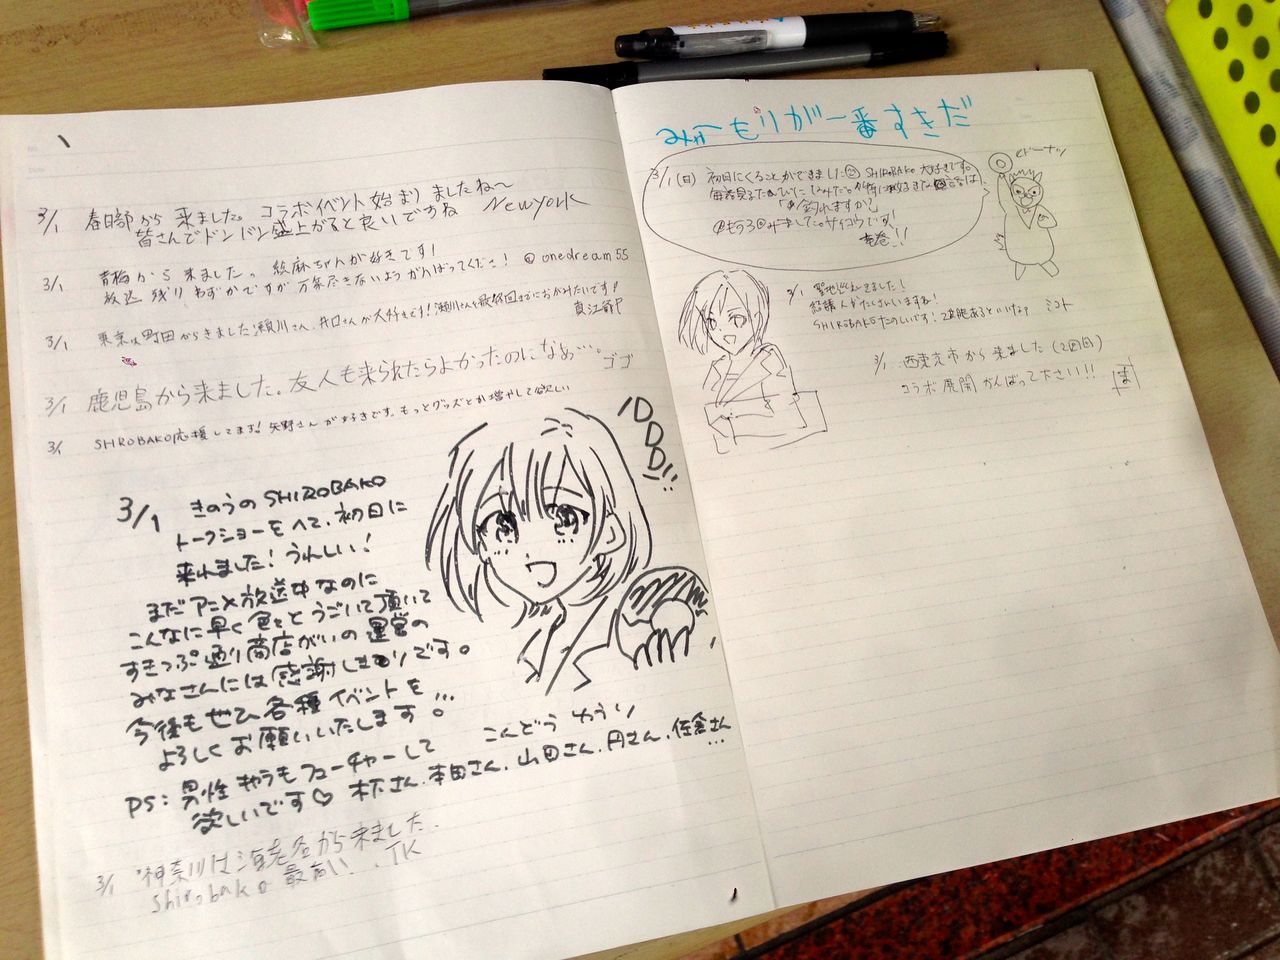 3/1 春日部から来ました。コラボイベント始まりましたね〜
皆さんでドンドン盛上がると良いですね Newyork
3/1 青梅から来ました。絵麻ちゃんが好きです!
放送残りわずかですが万策尽きないようがんばってくださ! @onedream55
3/1 東京は町田からきました 瀬川さん、井口さんが大好きです!瀬川さんを最終回までにおがみたいです!
3/1 鹿児島から来ました。友人も来られたらよかったのになぁ…。ゴゴ
3/1 SHIROBAKO応援してます!矢野さんが好きです。もっとグッズとか増やして欲しい
3/1 きのうのSHIROBAKO
トークショーをへて、初日に
来れました!うれしい!
まだアニメ放送中なのに
こんなに早く色々とうごいて頂いて
すきっぷ通り商店がいの運営の
みなさんには感謝しきりです。
今後もぜひ各種イベントを
よろしくお願いいたします。…
こんどう ゆうり
PS:男性キャラもフューチャーして
欲しいです♡ 木下さん、本田さん、山田さん、円さん、佐倉さん
…
DDD!!
3/1 神奈川は海老名から来ました。
Shirobako 最高い、TK
みゃーもりが一番すきだ
3/1(日) 初日にくることができました SHIROBAKO 大好きです。
「釣れますか」
サイコウです!
ドーナツ
3/1 聖地
結構人がたくさんいますね!
SHIROBAKOたのしいです!2期あるといいなァ ミコト
3/1 西東京市から来ました(2回目)
コラボ展開がんばって下さい!! ま